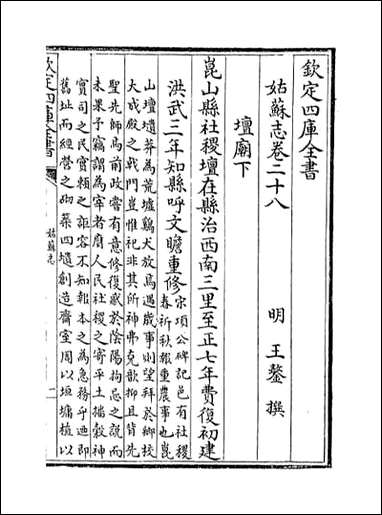 欽定四庫全書
姑蘇志卷二十八
明 王鏊 撰
壇廟下
崑山縣社稷壇在縣治西南三里至正七年費復初建
洪武三年知縣呼文瞻重修宋項公碑記邑有社稷
春祈秋報重農事也崑
山壇壝莽為荒墟鷄犬放焉遇歲事則望拜於鄉校
大成殿之㦸門豈惟祀非其所神弗克歆抑且背先
聖先師為前政嘗有意修復感於陰陽拘忌之説而
未果予竊謂為宰者府人民社稷之寄平土播穀神
實司之民實賴之詎容不知報本之為急務乎迺即
舊址而經營之㘭築四壝創造齋室周以垣墉植以
欽定四庫全書
姑蘇志